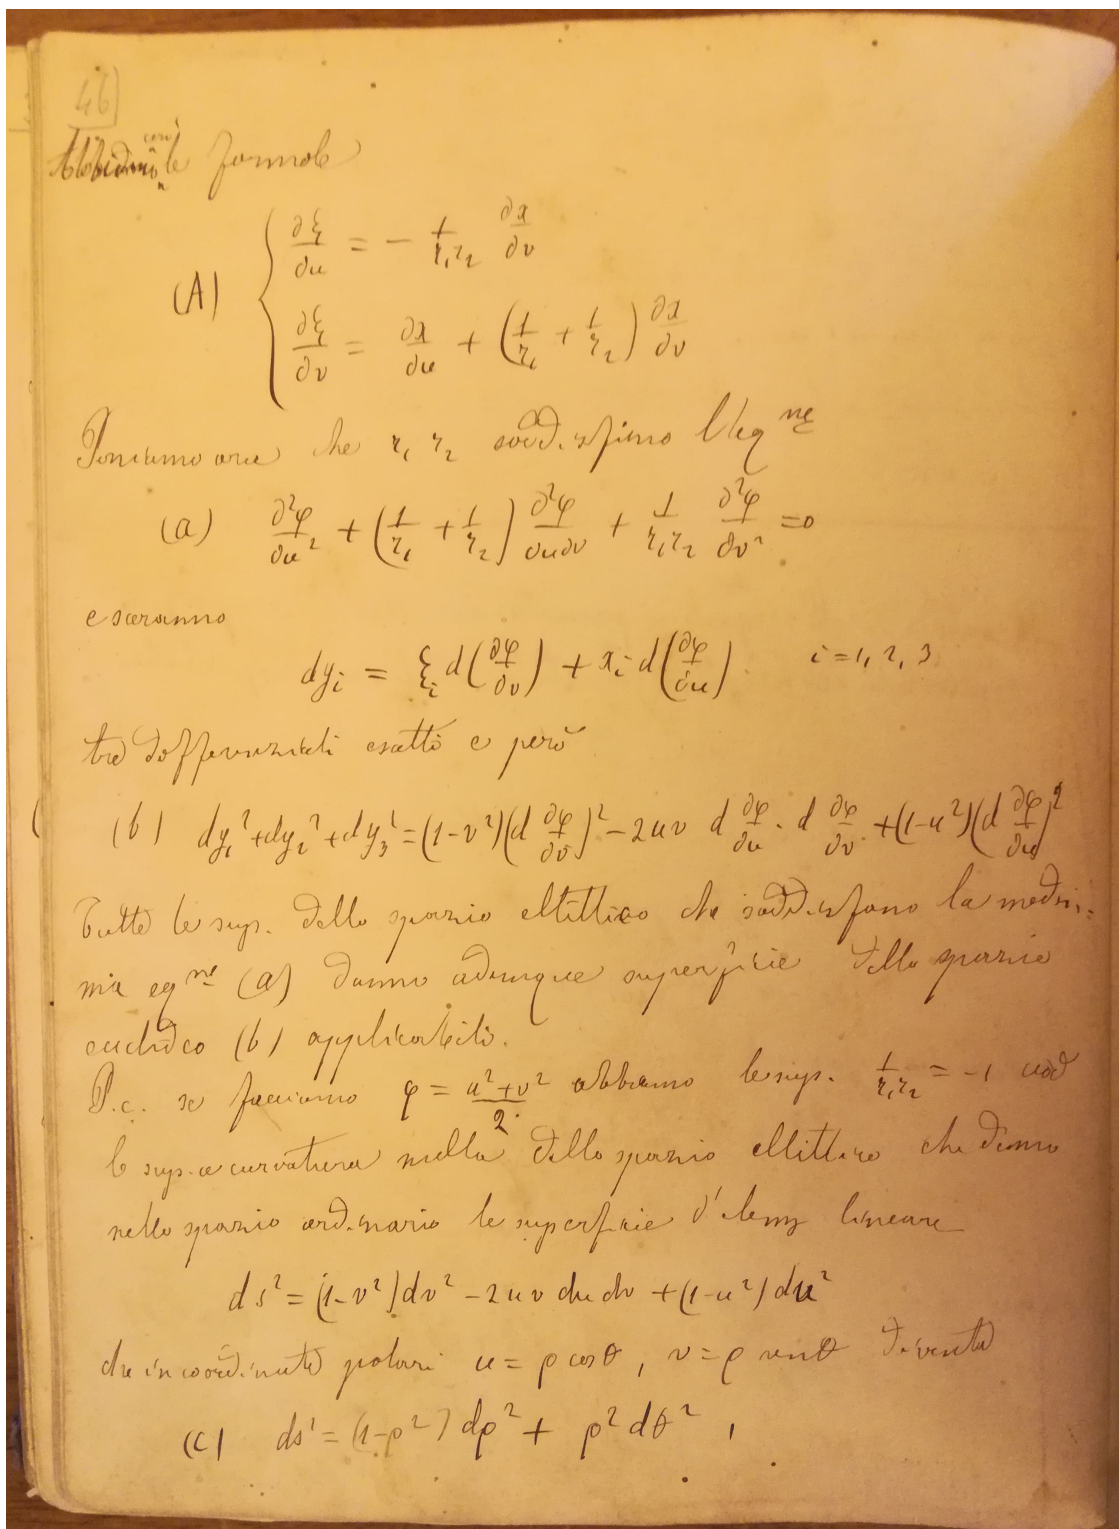 46)
Abbiamo così le formole
(A) { ∂ξ/∂u = - 1/(r₁r₂) ∂x/∂v
∂ξ/∂v = ∂x/∂u + (1/r₁ + 1/r₂) ∂x/∂v
Poniamo ora che r₁ r₂ soddisfino l'eqⁿᵉ
(a) ∂²φ/∂u² + (1/r₁ + 1/r₂) ∂²φ/∂u∂v + 1/(r₁r₂) ∂²φ/∂v² = 0
e saranno
dyᵢ = ξᵢ d(∂φ/∂v) + xᵢ d(∂φ/∂u) i = 1, 2, 3
tre differenziali esatti e però
(b) dy₁² + dy₂² + dy₃² = (1-v²)(d ∂φ/∂v)² - 2uv d ∂φ/∂u · d ∂φ/∂v + (1-u²)(d ∂φ/∂u)²
Tutte le sup. dello spazio ellittico che soddisfano la medesi-
ma eqⁿᵉ (a) danno adunque superficie dello spazio
euclideo (b) applicabili.
P.e. se facciamo φ = (u²+v²)/2 abbiamo le sup. 1/(r₁r₂) = -1 cioè
le sup. a curvatura nulla dello spazio ellittico che danno
nello spazio ordinario le superficie d'elemᵒ lineare
ds² = (1-v²)dv² - 2uv du dv + (1-u²) du²
che in coordinate polari u = ρ cosθ, v = ρ senθ diventa
(c) ds² = (1-ρ²) dρ² + ρ² dθ² ,